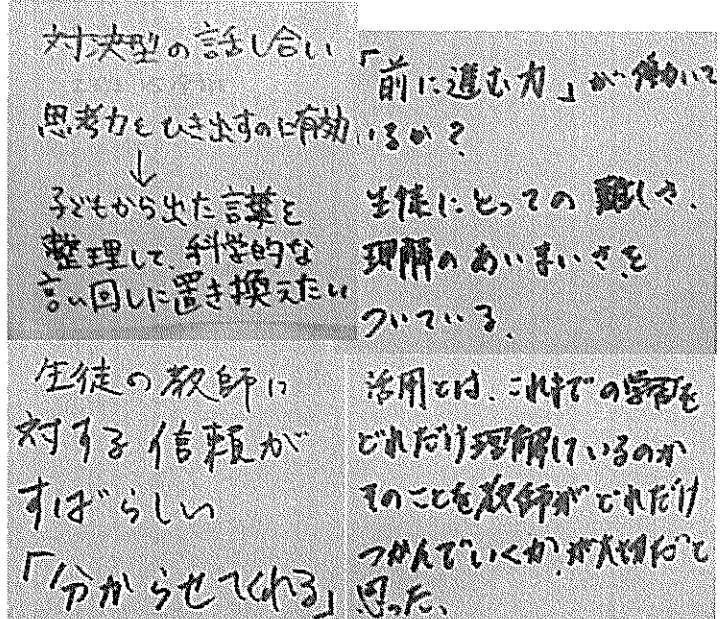 対決型の話し合い
思考力をひき出すのに有効
↓
子どもから出た言葉を
整理して、科学的な
言い回しに置き換えたい
「前に進む力」が働いて
いるか？
生徒にとっての難しさ、
理解のあいまいさを
ついている。
生徒の教師に
対する信頼が
すばらしい
「分からせてくれる」
活用とは、これまでの学習を
どれだけ理解しているのか
そのことを教師がどれだけ
つかんでいくか、が大切だと
思った。